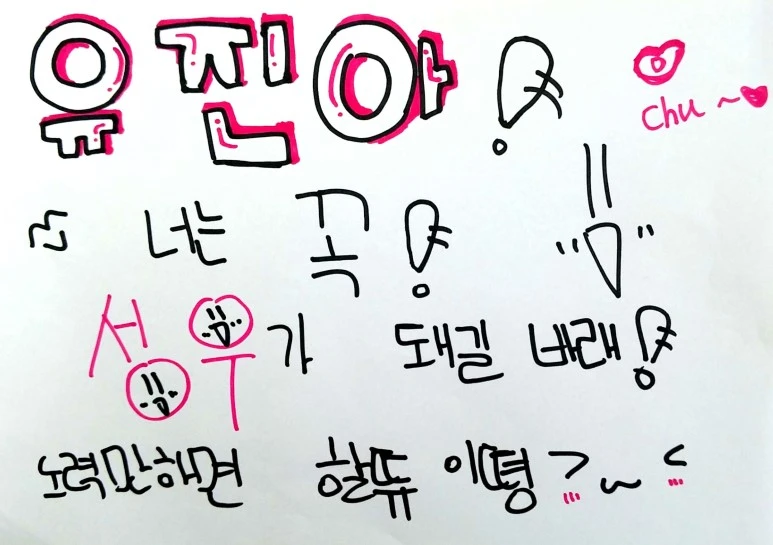 유진아!
chu~♥
너는 꼭!
성우가 돼길 바래!
노력만해면 할뜌 이떵